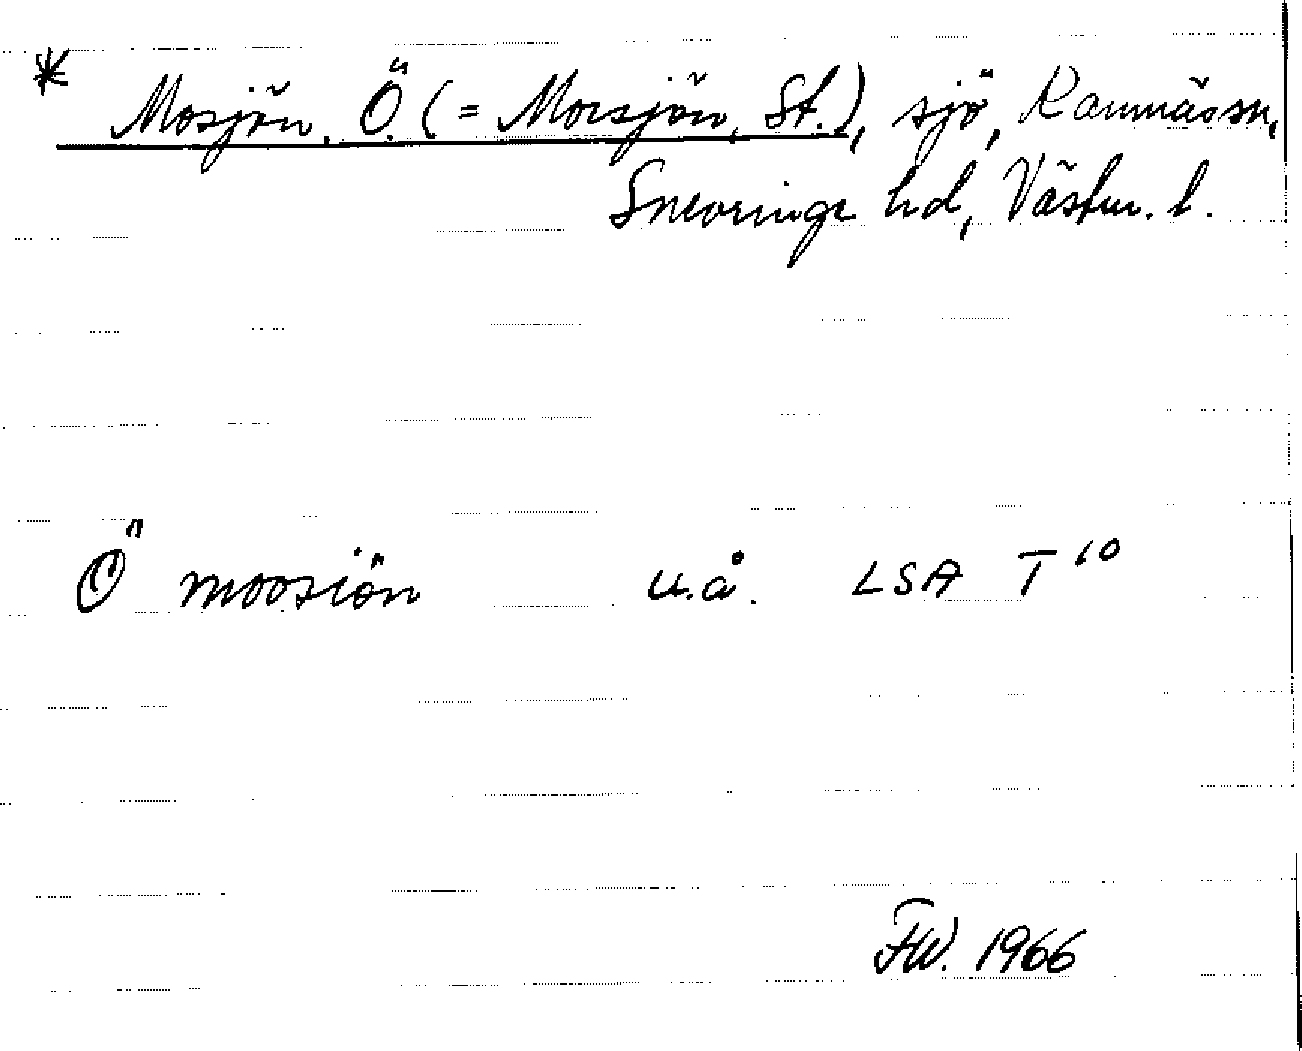 * Mosjön, Ö. (= Morsjön, St.), sjö, Ramnäs sn,
Snevringe hd, Västm. l.
Ö moosiön u.å. LSA T 10
FW. 1966